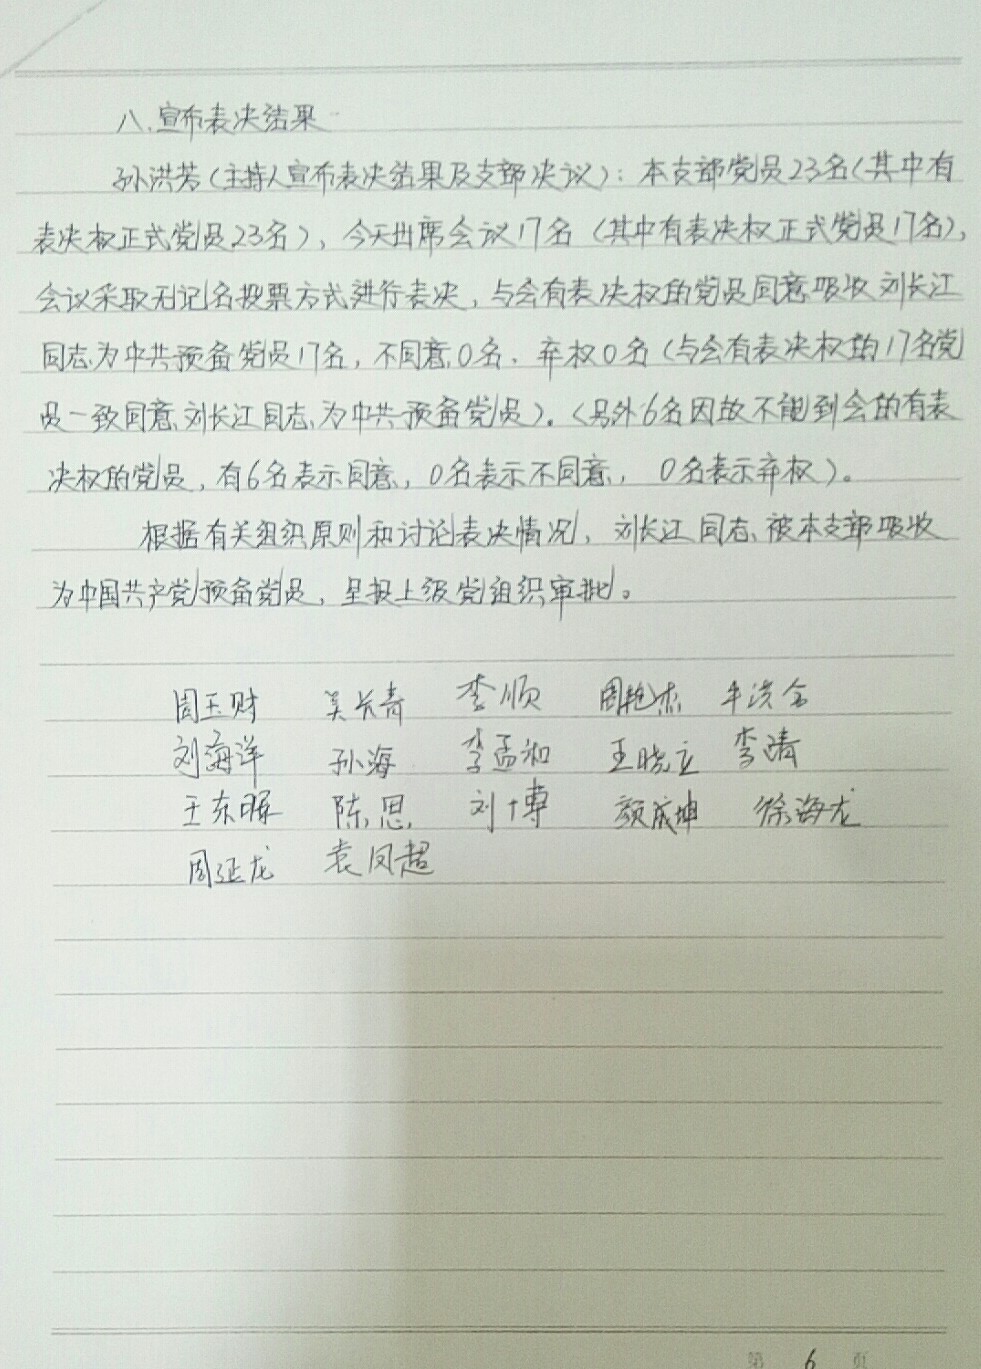 八、宣布表决结果
孙洪芳(主持人宣布表决结果及支部决议):本支部党员23名(其中有
表决权正式党员23名),今天出席会议17名(其中有表决权正式党员17名),
会议采取无记名投票方式进行表决,与会有表决权的党员同意吸收刘长江
同志为中共预备党员17名,不同意0名,弃权0名(与会有表决权的17名党
员一致同意刘长江同志为中共预备党员)。(另外6名因故不能到会的有表
决权的党员,有6名表示同意,0名表示不同意,0名表示弃权)。
根据有关组织原则和讨论表决情况,刘长江同志被本支部吸收
为中国共产党预备党员,呈报上级党组织审批。
周玉财 吴长青 李顺 周艳杰 牛洪全
刘海洋 孙海 李孟和 王晓立 李清
王东晖 陈思 刘博 颜成坤 徐海龙
周延龙 袁凤超
第 6 页